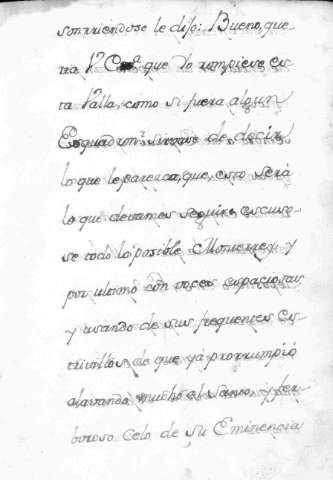 sonrriendose le dijo: Bueno, que-
ria V.ª Em.ª que Yo rompiese es
ta Valla, como si fuera algun
Esquadron? sirvase de decir
lo que le parezca, que, esto será
lo que devamos seguir; escuso-
se todo lo posible Monterrey y
por ultimo con voces espaciosas
y usando de sus frequentes es
trivillos, de que yá prorrumpió
alavando mucho el Santo, y fer
boroso Celo de Su Eminencia